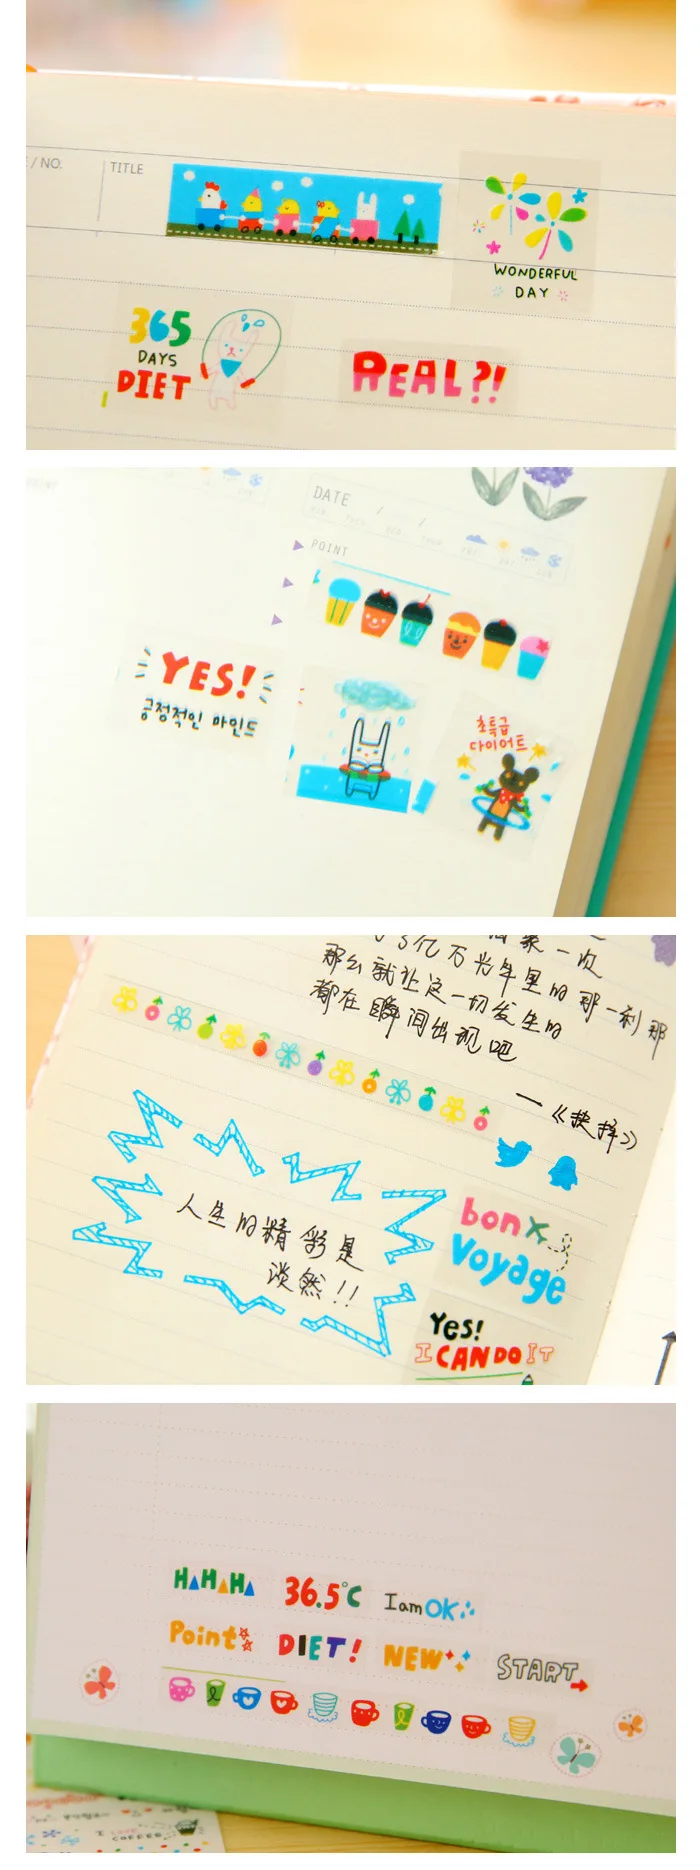 / NO.
TITLE
WONDERFUL
DAY
365
DAYS
DIET
REAL?!
DATE / /
POINT
YES!
긍정적인 마인드
초특급
다이어트
一次
亿万光年里的那一刹那
那么就让这一切发生的
都在瞬间出现吧
—《抉择》
人生的精彩是
淡然!!
bon
Voyage
Yes!
I CAN DO IT
HAHAHA
36.5°C
I am OK
Point
DIET!
NEW
START
COFFEE